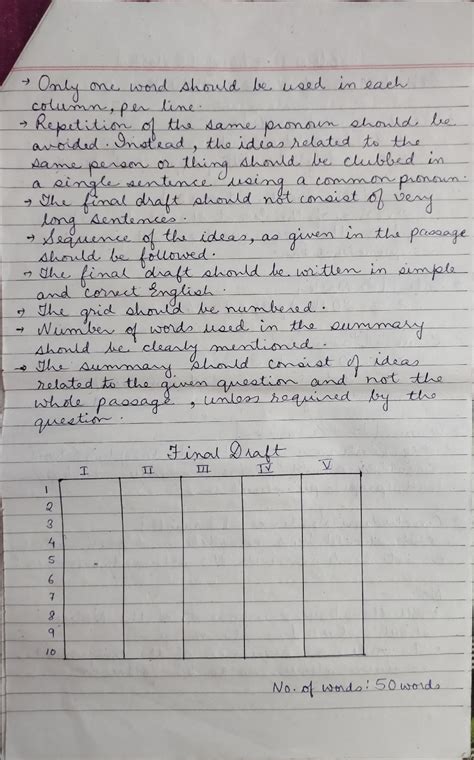 → Only one word should be used in each
column, per line.
→ Repetition of the same pronoun should be
avoided. Instead, the ideas related to the
same person or thing should be clubbed in
a single sentence using a common pronoun.
→ The final draft should not consist of very
long sentences.
→ Sequence of the ideas, as given in the passage
should be followed.
→ The final draft should be written in simple
and correct English.
→ The grid should be numbered.
→ Number of words used in the summary
should be clearly mentioned.
→ The summary should consist of ideas
related to the given question and not the
whole passage, unless required by the
question.
Final Draft
I II III IV V
1
2
3
4
5
6
7
8
9
10
No. of words: 50 words